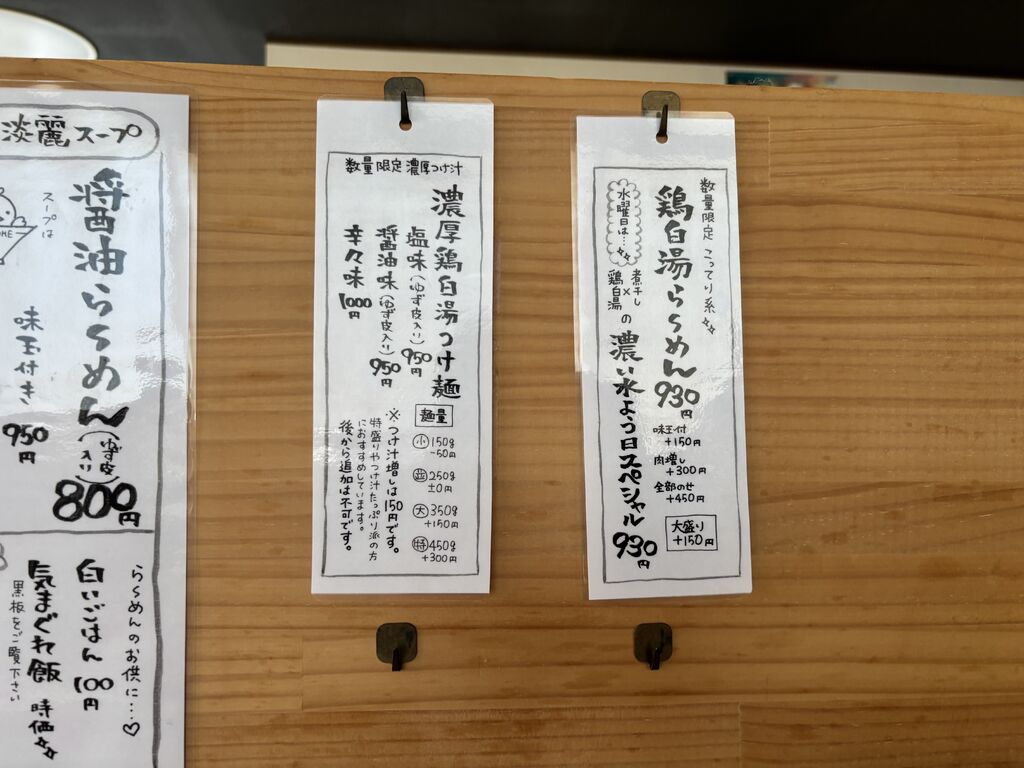 淡麗スープ
醤油らぁめん(ゆず皮入り)
800円
スープは
味玉付き
950円
らぁめんのお供に…♡
白いごはん 100円
気まぐれ飯 時価
黒板をご覧下さい
数量限定 濃厚つけ汁
濃厚鶏白湯つけ麺
塩味(ゆず皮入り) 950円
醤油味(ゆず皮入り) 950円
辛々味 1000円
麺量
小 150g
-50円
並 250g
±0円
大 350g
+150円
特 450g
+300円
※つけ汁増しは150円です。
特盛りやつけ汁たっぷり派の方
におすすめしています。
後から追加は不可です。
数量限定 こってり系
鶏白湯らぁめん 930円
味玉付
+150円
肉増し
+300円
全部のせ
+450円
大盛り
+150円
水曜日は…
煮干し×鶏白湯の
濃い水よう日スペシャル 930円